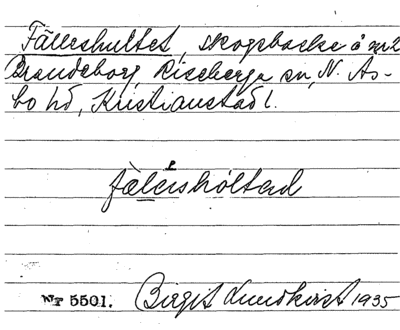 Fälleshultet, skogsbacke å mk
Brandeborg, Riseberga sn, N. Ås-
bo hd, Kristianstad l.
fäleshòltad
Nr 5501. Birgit Lundkvist 1935